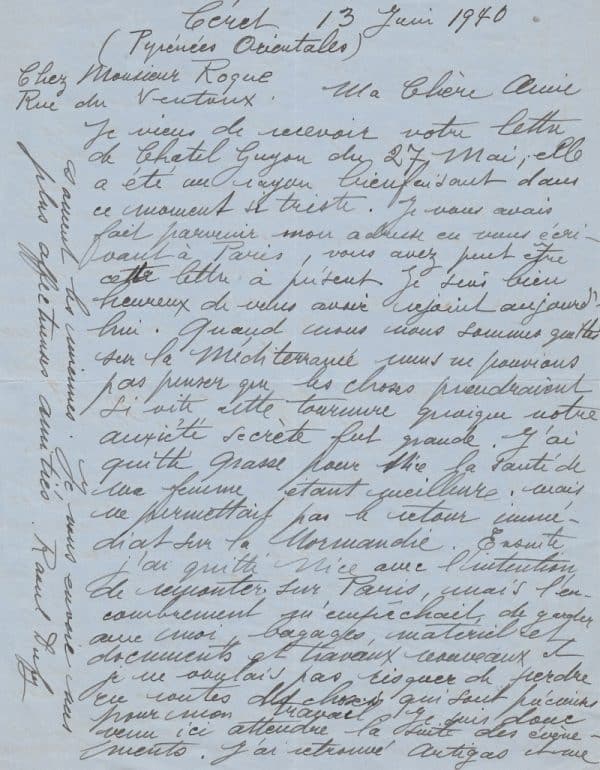 Céret 13 Juin 1940
(Pyrénées Orientales)
Chez Monsieur Roque
Rue du Ventoux.
Ma Chère Amie
Je viens de recevoir votre lettre
de Chatel Guyon du 27 Mai, elle
a été un rayon bienfaisant dans
ce moment si triste. Je vous avais
fait parvenir mon adresse en vous écri-
vant à Paris, vous avez peut être
cette lettre à présent. Je suis bien
heureux de vous avoir rejoint aujourd'
hui. Quand nous nous sommes quittés
sur la Méditerranée nous ne pouvions
pas penser que les choses prendraient
si vite cette tournure quoique notre
anxiété secrète fut grande. J'ai
quitté Grasse pour Nice la santé de
ma femme étant meilleure, mais
ne permettait pas le retour immé-
diat sur la Normandie. Ensuite
j'ai quitté Nice avec l'intention
de remonter sur Paris, mais l'en-
combrement m'empêchait de garder
avec moi, bagages, matériel et
documents et travaux nouveaux et
je ne voulais pas risquer de perdre
en routes des choses qui sont précieuses
pour mon travail. Je suis donc
venu ici attendre la suite des évène-
ments. J'ai retrouvé Artigas et me
les miennes. Je vous envoie mes
plus affectueuses amitiés. Raoul Dufy